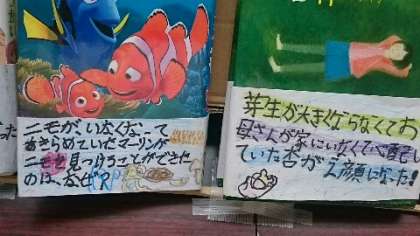 ニモが、いなくなって
あきらめていたマーリンが
ニモを見つけることができた
のは、なぜ?
芽生が大きくならなくてお
母さんが家にいなくて心配し
ていた杏が笑顔になった!